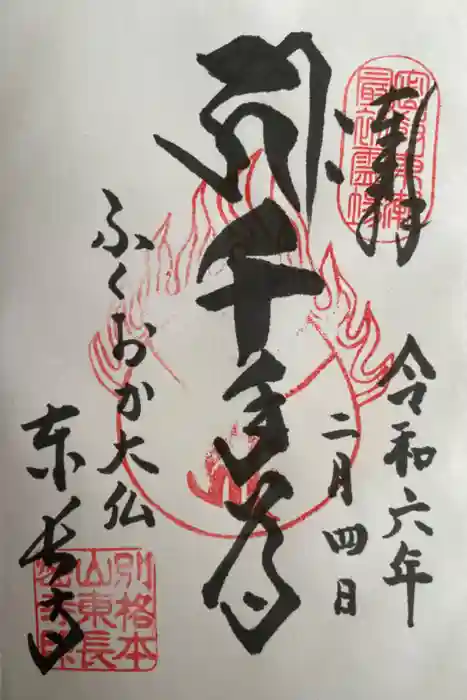 奉拝
令和六年
二月四日
千手尊
ふくおか大仏
東長寺
別格本
山東長